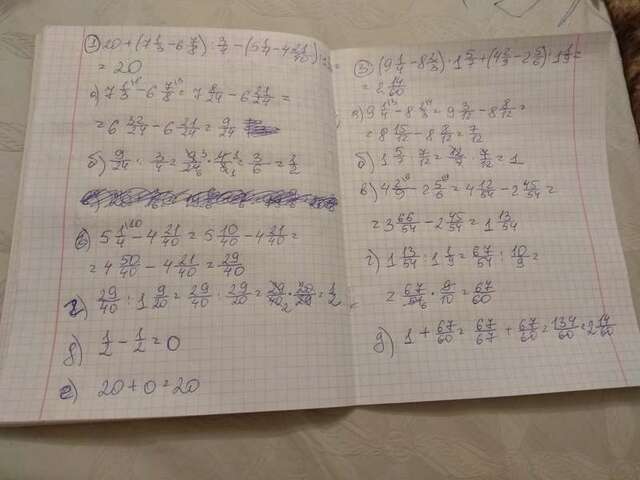 1) 20+(7 1/3-6 7/8):3/4-(5 1/4-4 21/40):1
= 20
а) 7 1/3-6 7/8=7 8/24-6 21/24=
=6 32/24-6 21/24=9/24
б) 9/24:3/4=9/24·4/3=3/6=1/2
в) 5 1/4-4 21/40=5 10/40-4 21/40=
=4 50/40-4 21/40=29/40
г) 29/40:1 9/20=29/40:29/20=29/40·20/29=1/2
д) 1/2-1/2=0
е) 20+0=20
3. (9 1/4-8 2/3)·1 5/7+(4 2/9-2 5/6):1 1/9=
=2 14/60
а) 9 1/4-8 2/3=9 3/12-8 8/12=
=8 15/12-8 8/12=7/12
б) 1 5/7·7/12=12/7·7/12=1
в) 4 2/9-2 5/6=4 12/54-2 45/54=
=3 66/54-2 45/54=1 13/54
г) 1 13/54:1 1/9=67/54:10/9=
=67/54·9/10=67/60
д) 1+67/60=67/67+67/60=134/60=2 14/60